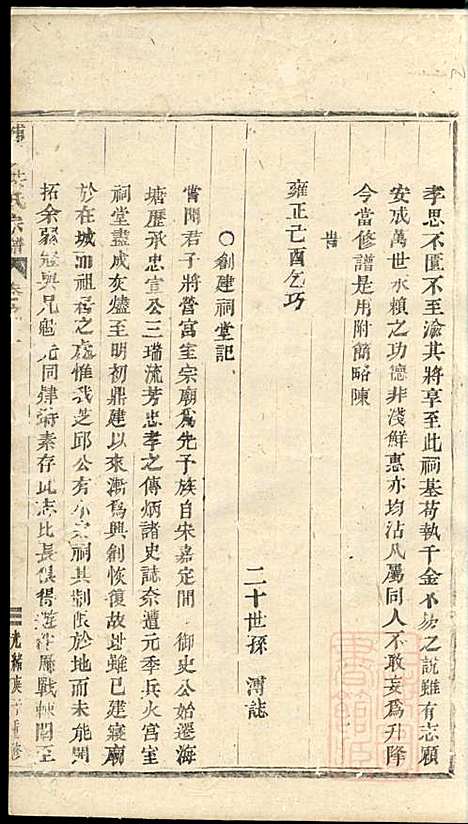 孝思不匱不至淪其將享至此祠基苟執千金不易之說雖有志願
安成萬世永賴之功德非淺鮮惠亦均沾凡屬同人不敢妄為升降
今當修譜是用附簡略陳
旹
雍正己酉乞巧
二十世孫 溥誌
○創建祠堂記
嘗聞君子將營宮室宗廟為先予族自宋嘉定間 御史公始遷海
塘歷承忠宣公三瑞流芳忠孝之傳炳諸史誌奈遭元季兵火宮室
祠堂盡成灰燼至明初鼎建以來漸為興創恢復故址雖已建寢廟
於在城迪祖居之處惟我芝邱公有小宗祠其制限於地而未能開
拓余弱冠與兄 元同肆 素存此志比長俱得遊泮屢戰棘闈至
氏宗譜 卷之
光緒庚 重修